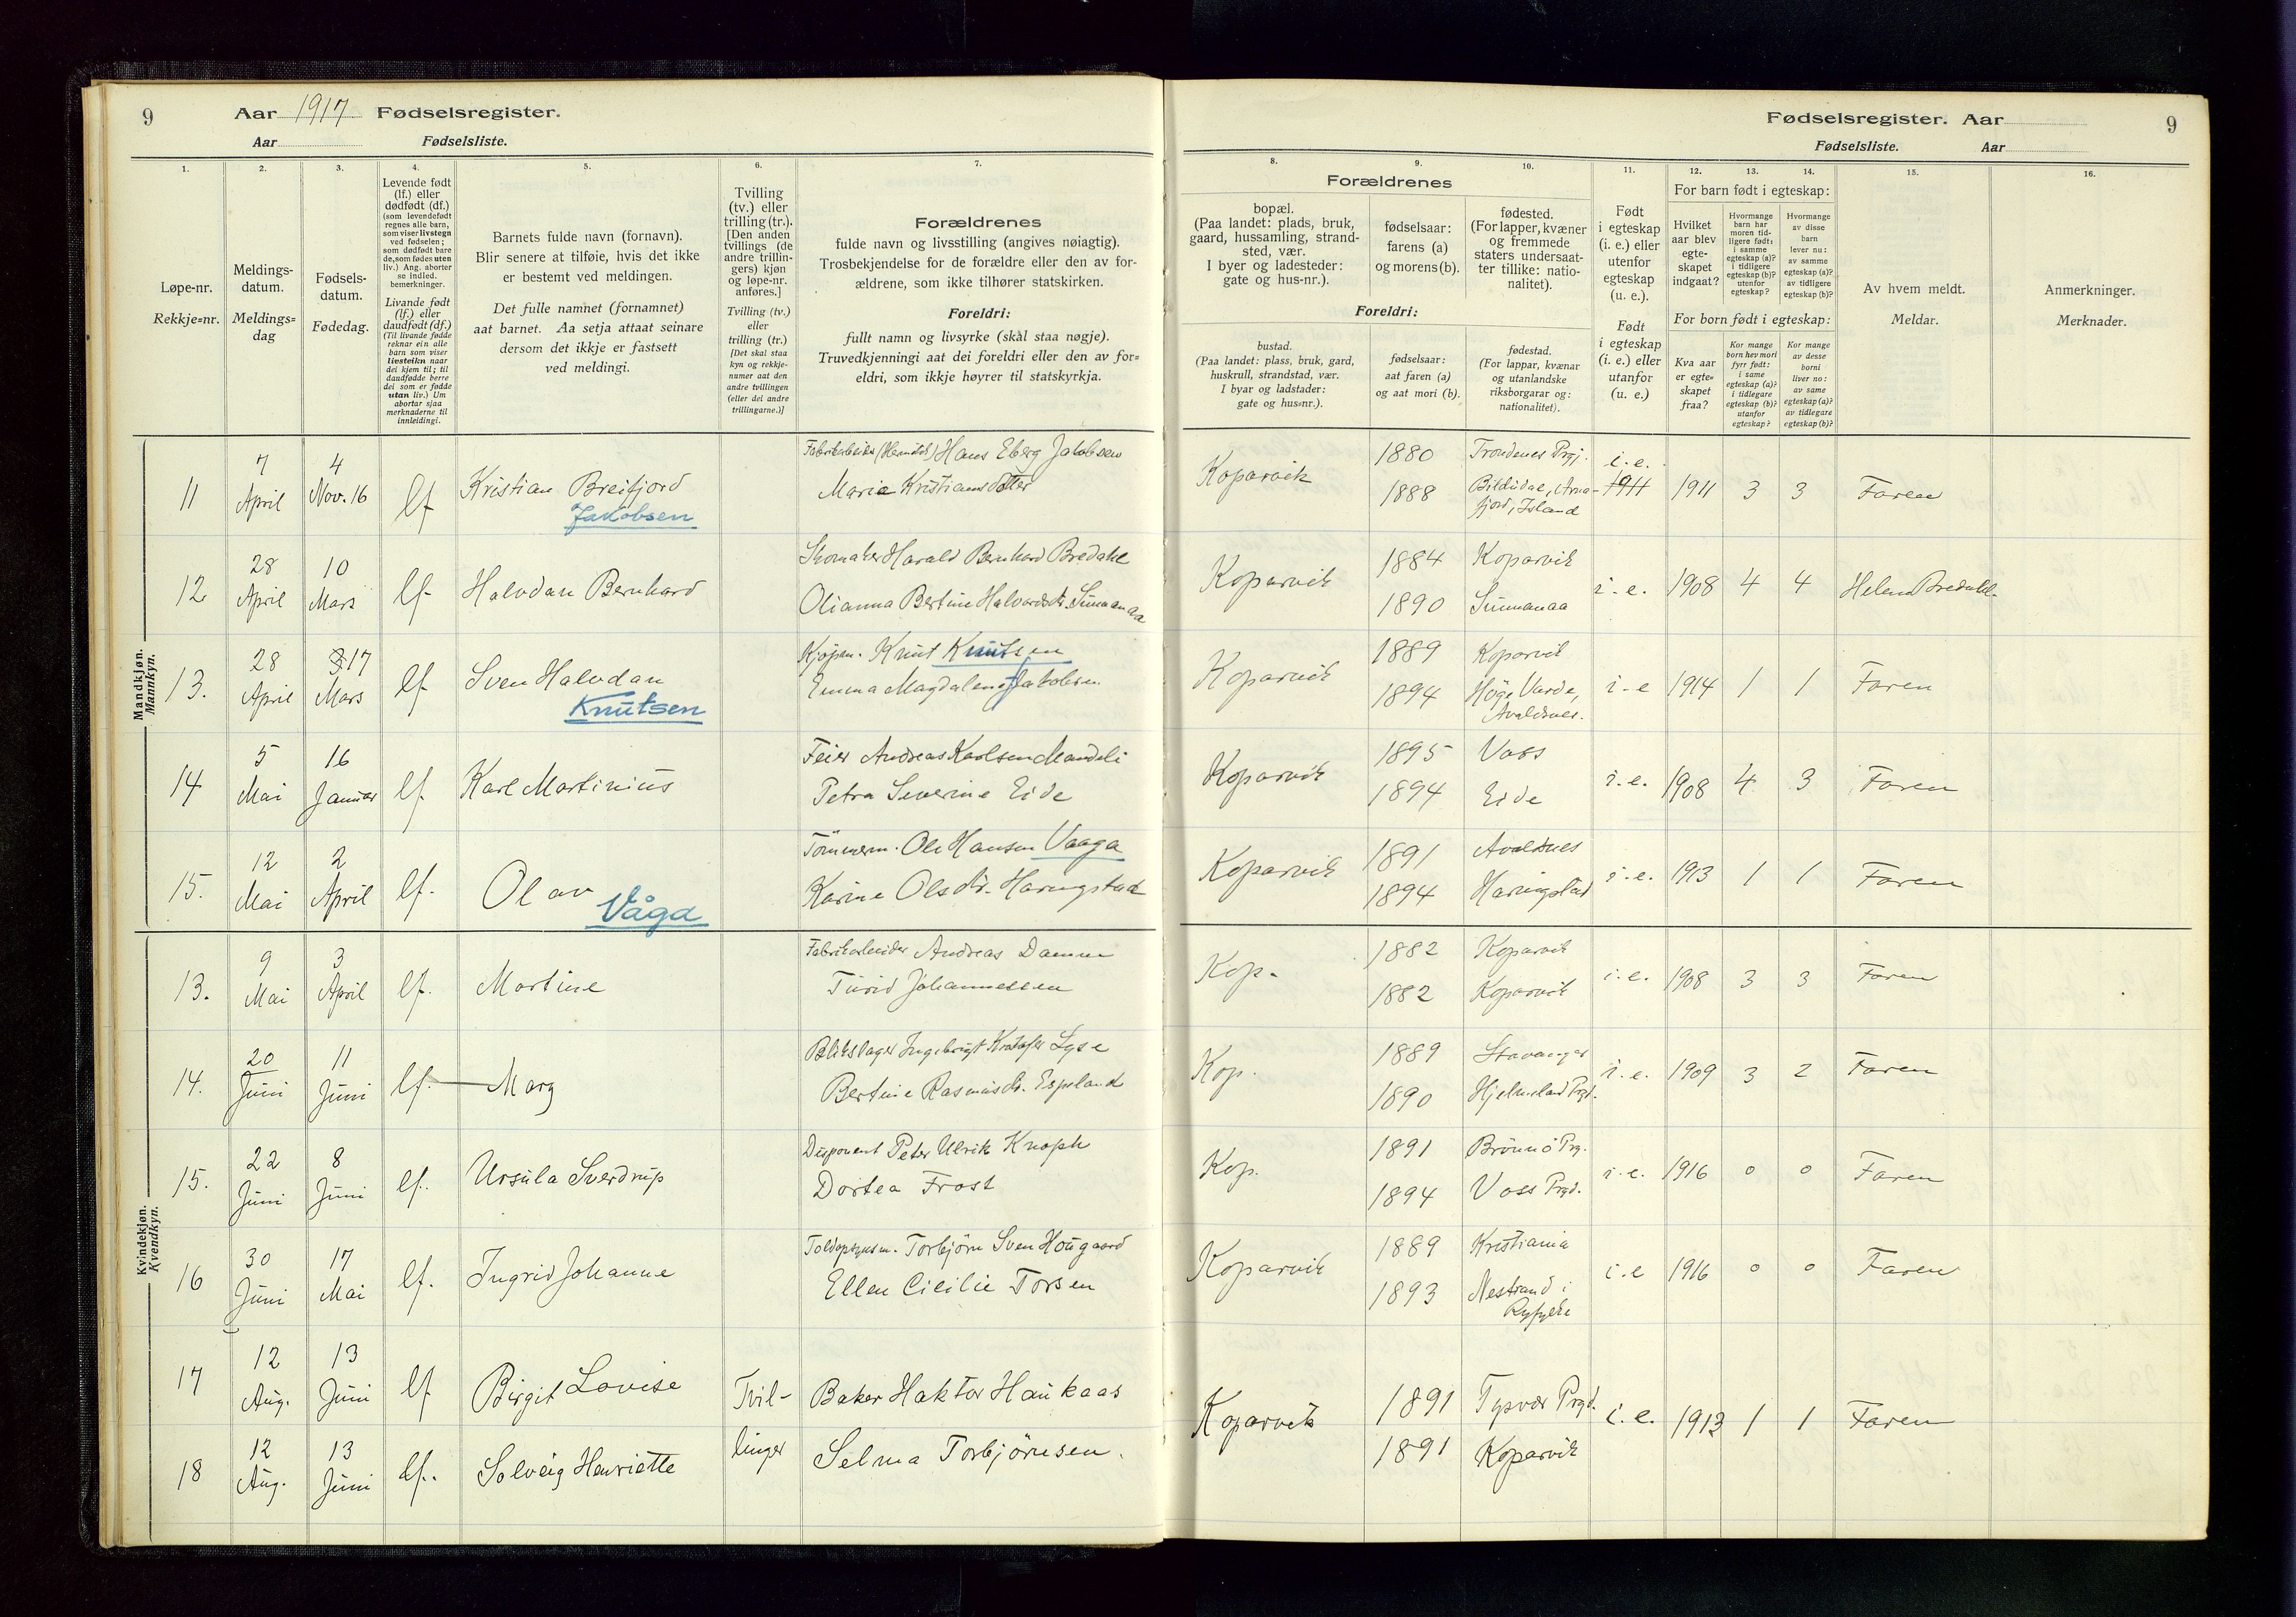 9 Aar 1917 Fødselsregister.
Aar Fødselsliste.
1. 2. 3. 4. 5. 6. 7.
Løpe-nr.
Rekkje=nr.
Meldings-
datum.
Meldings=
dag
Fødsels-
datum.
Fødedag.
Levende født
(lf.) eller
dødfødt (df.)
(som levendefødt
regnes alle barn,
som viser livstegn
ved fødselen;
som dødfødt bare
de, som fødes uten
liv.) Ang. aborter
se indled.
bemerkninger.
Livande født
(lf.) eller
daudfødt (df.)
(Til livande fødde
reknar ein alle
barn som viser
livsteikn naar
dei kjem til; til
daudfødde berre
dei som er fødde
utan liv.) Um
abortar sjaa
merknaderne til
innleidingi.
Barnets fulde navn (fornavn).
Blir senere at tilføie, hvis det ikke
er bestemt ved meldingen.
Det fulle namnet (fornamnet)
aat barnet. Aa setja attaat seinare
dersom det ikkje er fastsett
ved meldingi.
Tvilling
(tv.) eller
trilling (tr.).
[Den anden
tvillings (de
andre trillin-
gers) kjøn
og løpe-nr.
anføres.]
Tvilling (tv.)
eller
trilling (tr.)
[Det skal staa
kyn og rekkje-
numer aat den
andre tvillingen
(eller dei andre
trillingarne.)]
Forældrenes
fulde navn og livsstilling (angives nøiagtig).
Trosbekjendelse for de forældre eller den av for-
ældrene, som ikke tilhører statskirken.
Foreldri:
fullt namn og livsyrke (skål staa nøgje).
Truvedkjenningi aat dei foreldri eller den av for=
eldri, som ikkje høyrer til statskyrkja.
Mandkjøn.
Mannkyn.
11 7 April 4 Nov. 16 lf Kristian Breifjord
Jakobsen
Hans Eberg Jakobsen
Maria Kristiansdotter
12 28 April 10 Mars lf. Halvdan Bernhard
Skomaker Harald Bernhard Bredahl
Olianna Bertine Halvardsdtr. Simannaa
13. 28 April 17 Mars lf. Sven Halvdan
Knutsen
Kjøpm. Knut Knutsen
Emma Magdalene f. Jakobsen
14 5 Mai 16 Januar lf. Karl Martinius
Feier Andreas Karlsen Mandeli
Petra Severine Eide
15. 12 Mai 2 April lf. Olav
Våga
Tømmerm. Ole Hansen Vaaga
Karine Olsdtr. Haringstad
Kvindekjøn.
Kvendkyn.
13. 9 Mai 3 April lf. Martine
Fabrikarbeider Andreas Damm
Turid Johannessen
14. 20 Juni 11 Juni lf. Mary
Blikslager Ingebrigt Kristofer Lyse
Bertine Rasmusdtr. Espeland
15. 22 Juni 8 Juni lf. Ursula Sverdrup
Disponent Peter Ulrik Knoph
Dortea Frost
16 30 Juni 17 Mai lf. Ingrid Johanne
Toldopsynsm. Torbjørn Sven Hougaard
Ellen Cicilie Torsen
17 12 Aug. 13 Juni lf Birgit Lovise Tvil-
Baker Haktor Haukaas
18 12 Aug. 13 Juni lf. Solveig Henriette linger
Selma Torbjørnsen.
Fødselsregister. Aar 9
Fødselsliste. Aar
8. 9. 10. 11. 12. 13. 14. 15. 16.
Forældrenes
bopæl.
(Paa landet: plads, bruk,
gaard, hussamling, strand-
sted, vær.
I byer og ladesteder:
gate og hus-nr.).
fødselsaar:
farens (a)
og morens (b).
fødested.
(For lapper, kvæner
og fremmede
staters undersaat-
ter tillike: natio-
nalitet).
Foreldri:
bustad.
(Paa landet: plass, bruk, gard,
huskrull, strandstad, vær.
I byar og ladstader:
gate og hus=nr.).
fødselsaar:
aat faren (a)
og aat mori (b).
fødestad.
(For lappar, kvænar
og utanlandske
riksborgarar og:
nationalitet).
Født
i egteskap
(i. e.) eller
utenfor
egteskap
(u. e.).
Født
i egteskap
(i. e.) eller
utanfor
(u. e.)
For barn født i egteskap:
Hvilket
aar blev
egte-
skapet
indgaat?
Hvormange
barn har
moren tid-
ligere født:
i samme
egteskap (a)?
i tidligere
egteskap (b)?
utenfor
egteskap?
Hvormange
av disse
barn
lever nu:
av samme
egteskap (a)?
av tidligere
egteskap (b)?
For born født i egteskap:
Kva aar
er egte=
skapet
fraa?
Kor mange
born hev mori
fyrr født:
i same
egteskap (a)?
i tidlegare
egteskap (b)?
utanfor
egteskap?
Kor mange
av desse
borni
liver no:
av same
egteskap (a)?
av tidlegare
egteskap (b)?
Av hvem meldt.
Meldar.
Anmerkninger.
Merknader.
Koparvik 1880 Trondenes Prgj. i.e.
1888 Bildudal, Arna-
fjord, Island 1911 1911 3 3 Faren
Koparvik 1884 Koparvik
1890 Simannaa i.e. 1908 4 4 Helene Bredahl.
Koparvik 1889 Koparvik
1894 Høge Varde,
Avaldsnes. i-e 1914 1 1 Faren
Koparvik 1895 Voss
1894 Eide i.e. 1908 4 3 Faren
Koparvik 1891 Avaldsnes
1894 Haringstad i.e. 1913 1 1 Faren
Kop. 1882 Koparvik
1882 Koparvik i.e. 1908 3 3 Faren
Kop. 1889 Stavanger
1890 Hjelmeland Prgd. i.e. 1909 3 2 Faren
Kop. 1891 Brønnø Prg.
1894 Voss Prgd. i.e. 1916 0 0 Faren
Koparvik 1889 Kristiania
1893 Nestrand i
Ryfylke i.e 1916 0 0 Faren
Koparvik 1891 Tysvær Prgd.
1891 Koparvik i.e. 1913 1 1 Faren